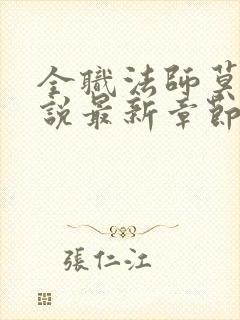 全職法師莫
說最新章節
張仁江